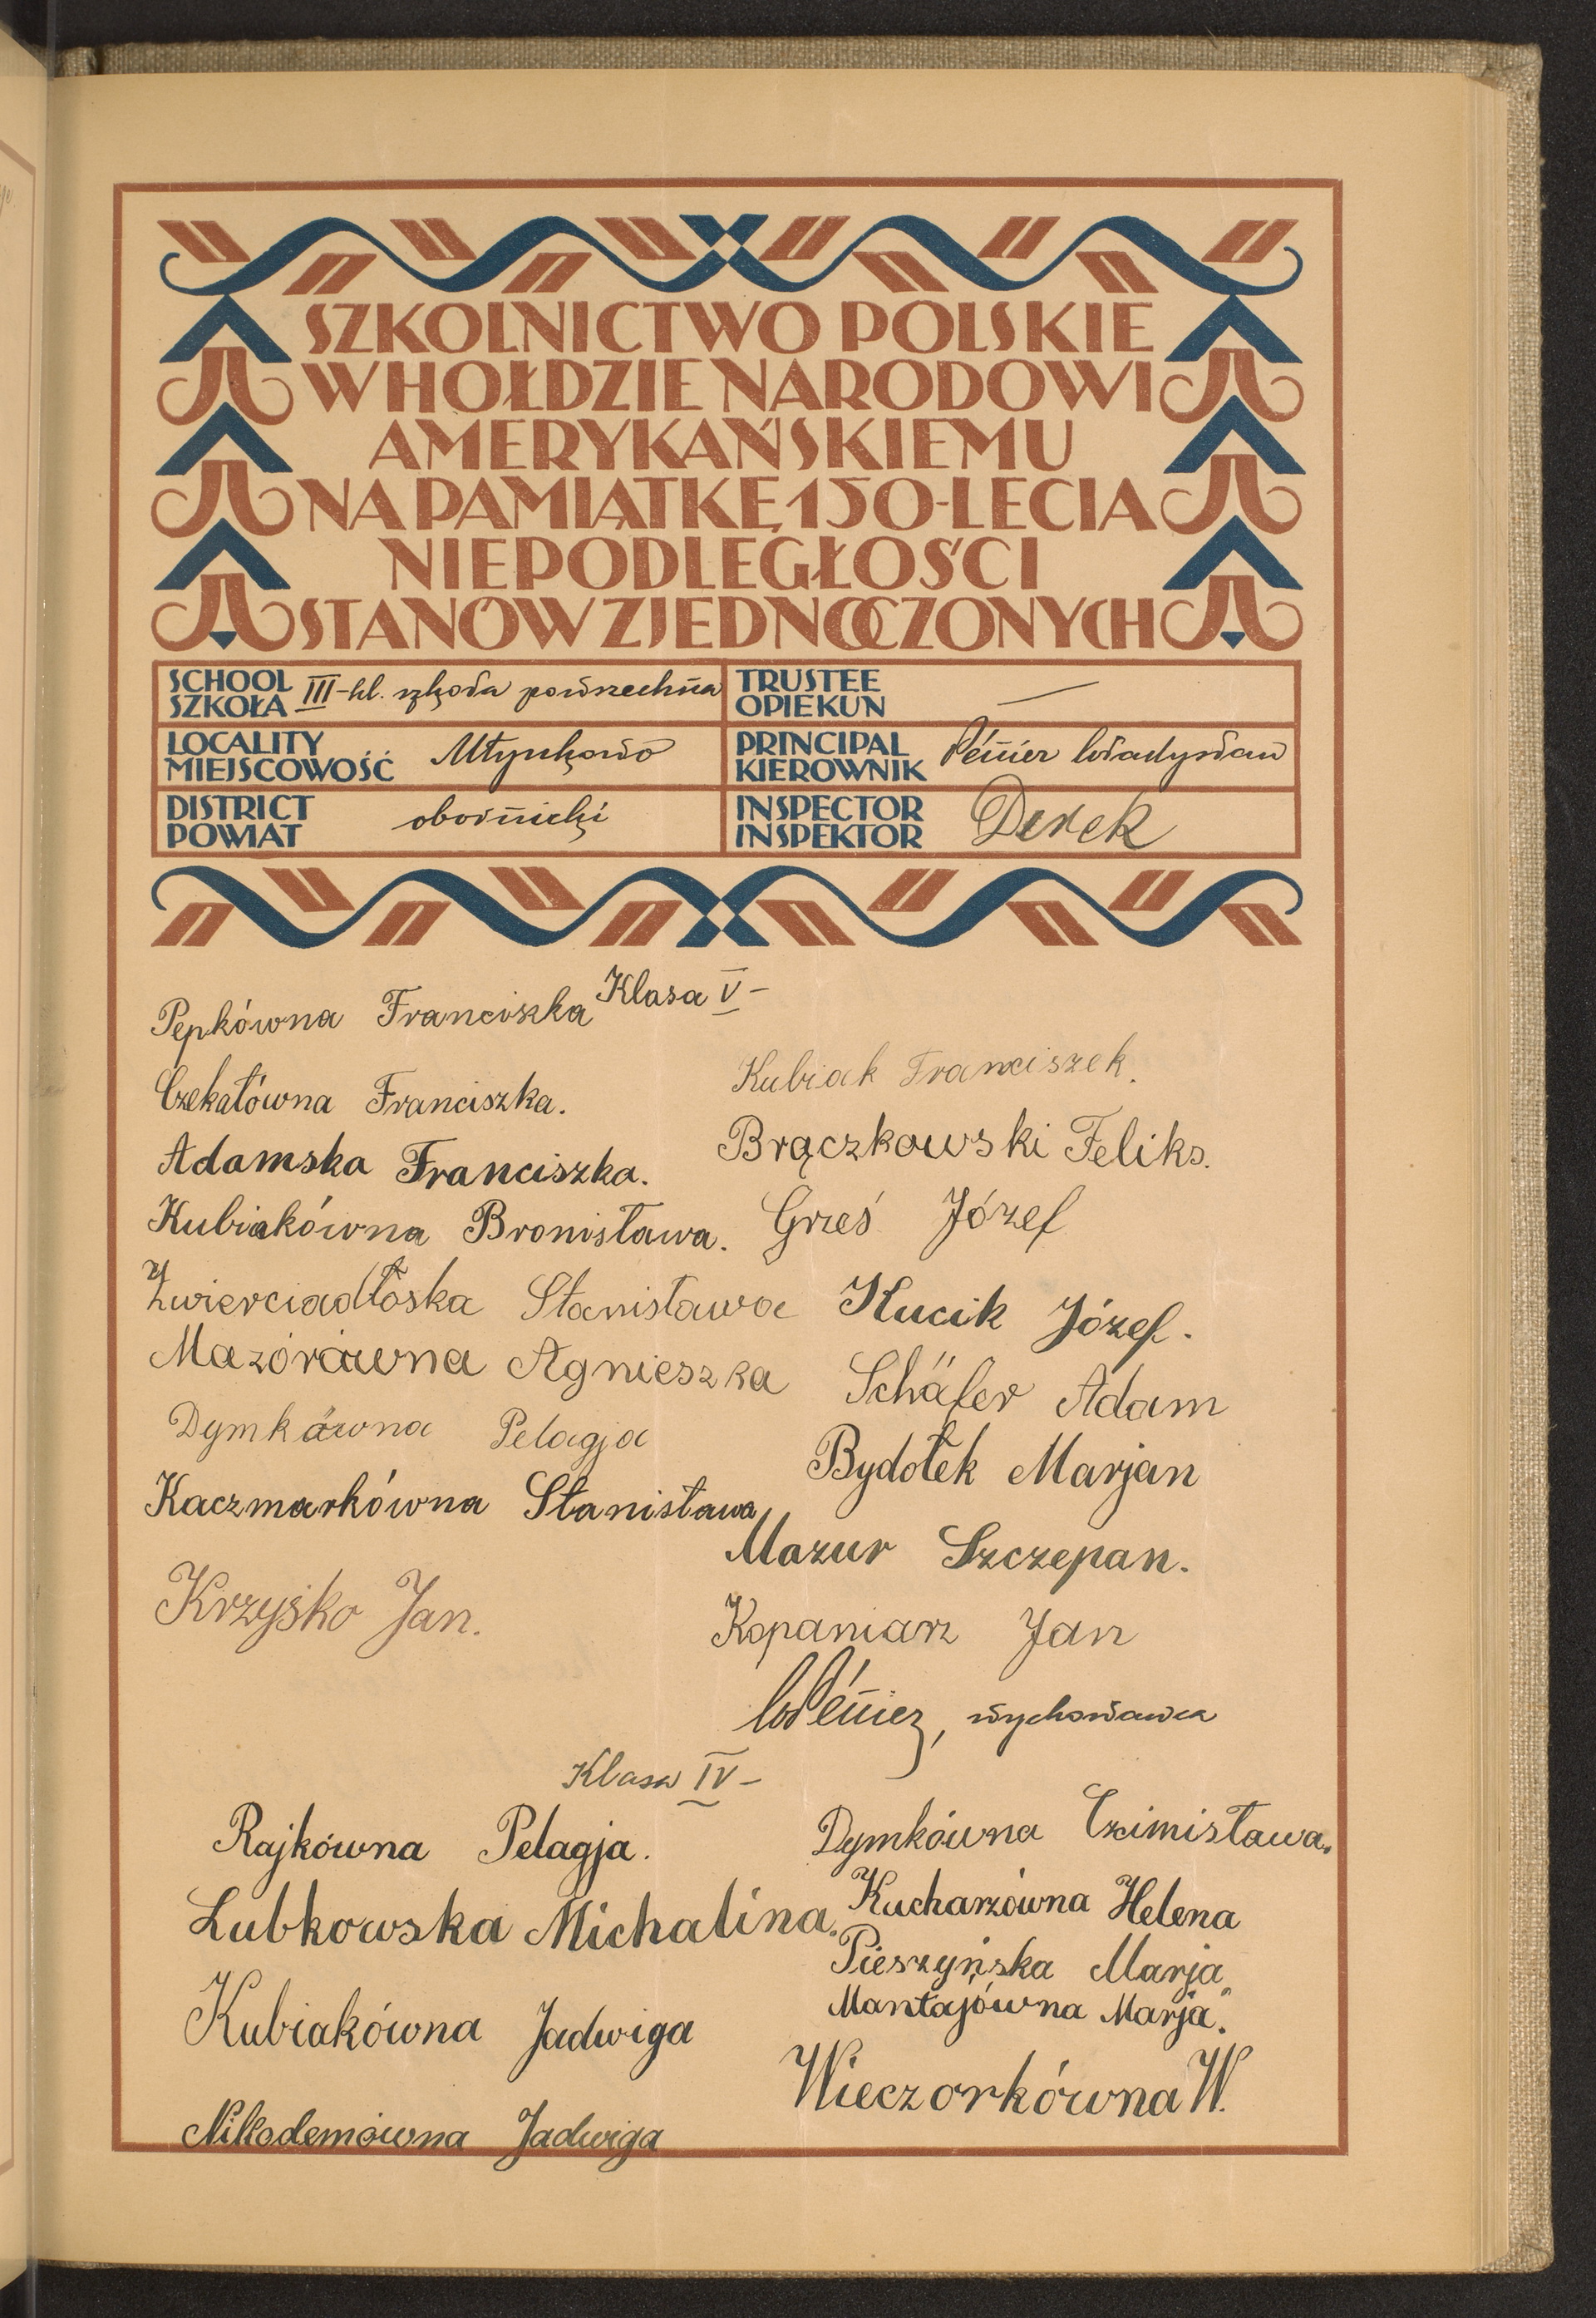 SZKOLNICTWO POLSKIE
W HOŁDZIE NARODOWI
AMERYKAŃSKIEMU
NA PAMIĄTKĘ 150-LECIA
NIEPODLEGŁOŚCI
STANÓW ZJEDNOCZONYCH
SCHOOL
SZKOŁA III-kl. szkoła powszechna
TRUSTEE
OPIEKUN —
LOCALITY
MIEJSCOWOŚĆ Młynkowo
PRINCIPAL
KIEROWNIK Władysław
DISTRICT
POWIAT obornicki
INSPECTOR
INSPEKTOR Derek
Klasa V –
Pepkówna Franciszka
Czekałówna Franciszka.
Adamska Franciszka.
Kubiakówna Bronisława.
Zwierciadłoska Stanisława
Mazórówna Agnieszka
Dymkówna Pelagja
Kaczmarkówna Stanisława
Krzyśko Jan.
Kubiak Franciszek.
Brączkowski Feliks.
Grześ Józef
Kucik Józef.
Schäfer Adam
Bydołek Marjan
Mazur Szczepan.
Kopaniarz Jan
wychowawca
Klasa IV –
Rajkówna Pelagja.
Lubkowska Michalina.
Kubiakówna Jadwiga
Nikodemówna Jadwiga
Dymkówna Czimisława.
Kucharzówna Helena
Pieszyńska Marja
Mantajówna Marja.
Wieczorkówna W.